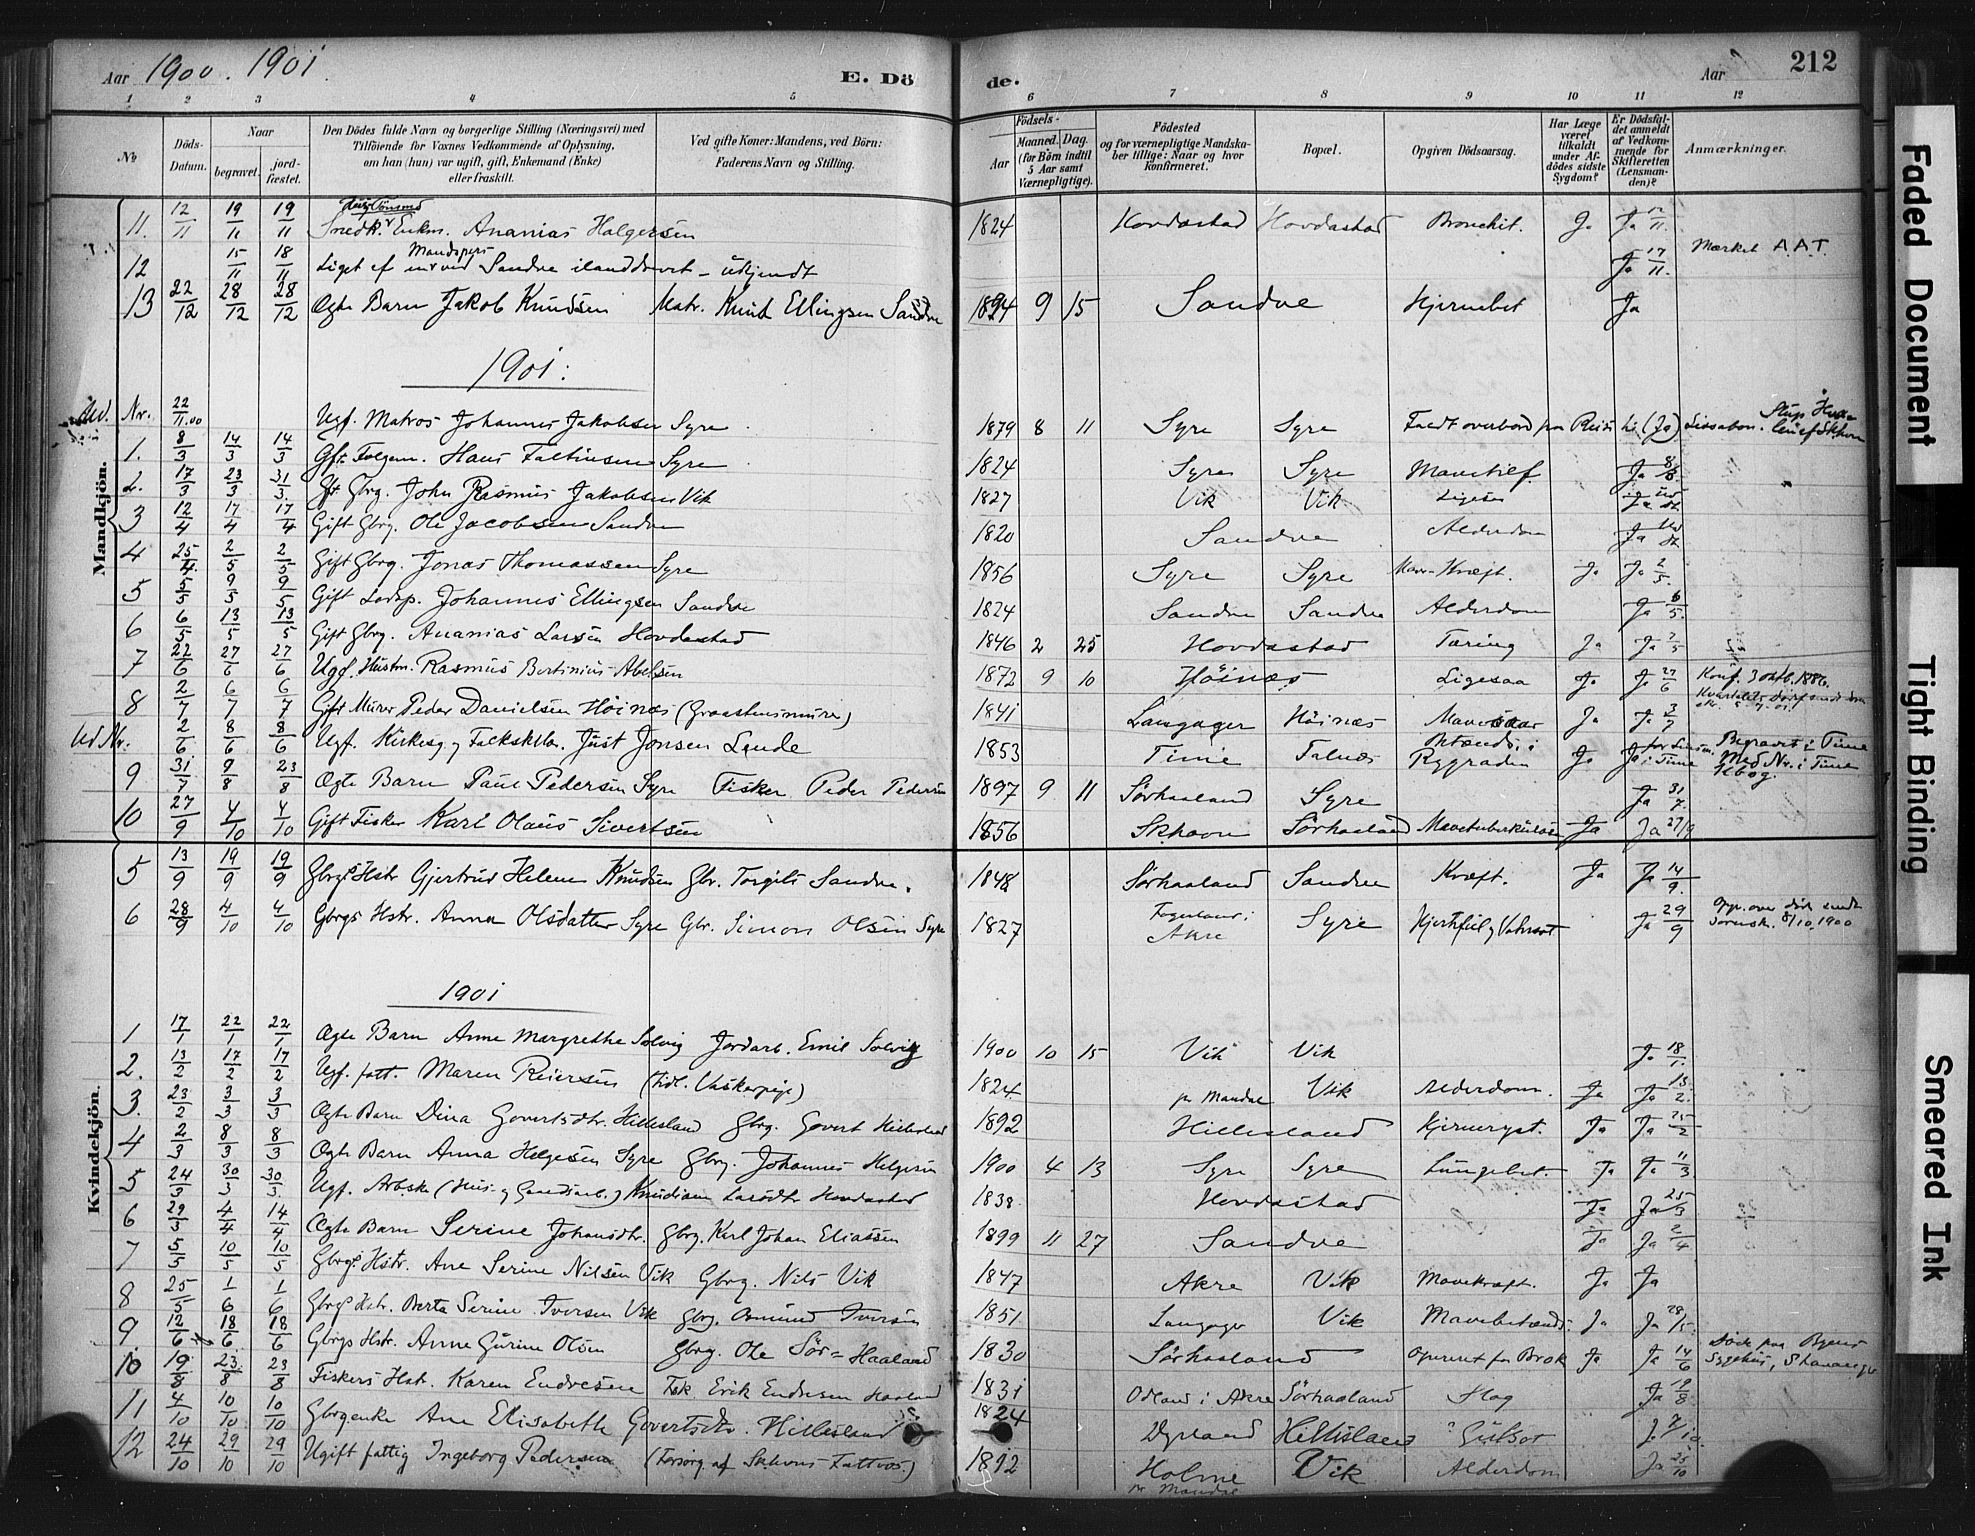 Aar 1900. 1901. E. Dö
de. Aar 212
1 2 3 4 5 6 7 8 9 10 11 12
No
Döds-Datum.
Naar
begravet.
jord-fæstet.
Den Dödes fulde Navn og borgerlige Stilling (Næringsvei) med
Tilföiende for Voxnes Vedkommende af Oplysning,
om han (hun) var ugift, gift, Enkemand (Enke)
eller fraskilt.
Ved gifte Koner: Mandens, ved Börn:
Faderens Navn og Stilling.
Födsels-
Aar
Maaned. Dag.
(for Börn indtil
5 Aar samt
Værnepligtige).
Födested
og for værnepligtige Mandska-
ber tillige: Naar og hvor
Konfirmeret.
Bopæl.
Opgiven Dödsaarsag.
Har Læge
været
tilkaldt
under Af-
dödes sidste
Sygdom?
Er Dödsfal-
det anmeldt
af Vedkom-
mende for
Skifteretten
(Lensman-
den)?
Anmærkninger.
Mandkjön.
11. 12/11 19/11 19/11 Snedk. Enkm. Ananias Holgersen 1824 Hovdastad Hovdastad Bronchit. Ja Ja 12/11.
12 15/11 18/11 Liget af Mandspers ved Sandve ilanddrevet - ukjendt Ja 17/11. Mærket A.A.T.
13 22/12 28/12 28/12 Ægte Barn Jakob Knudsen Matr. Knud Ellingsen Sandve 1894 9 15 Sandve Hjernebet Ja
1901.
Ud. Nr. 22/11.00 Ugf. Matros Johannes Jakobsen Syre 1879 8 11 Syre Syre Faldt overbord paa Reise (Ja) Lissabon.
1. 8/3 14/3 14/3 Gft. Folgem. Hans Faltinsen Syre 1824 Syre Syre Ja 8/3.
2. 17/3 23/3 31/3. Gft. Gbrg. John Rasmus Jakobsen Vik 1827 Vik Vik Ligesaa Ja
3 12/4 17/4 17/4 Gift Gbrg. Ole Jacobsen Sandve 1820 Sandve Alderdom Ja
4 25/4. 2/5 2/5 Gift Gbrg. Jonas Thomassen Syre 1856 Syre Syre Mave-Kræft. Ja Ja 2/5.
5 5/5 9/5 9/5 Gift Lodsp. Johannes Ellingsen Sandve 1824 Sandve Sandve Alderdom Ja 6/5.
6 6/5 13/5 13/5 Gift Gbrg. Ananias Larsen Hovdastad 1846 2 25 Hovdastad Tæring Ja Ja 7/5
7 22/6 27/6 27/6 Ugf. Husm. Rasmus Bertinius Abelsen 1872 9 10 Høinæs Ligesaa Ja Ja 27/6 Konf. 3 oktb. 1886.
8 2/7 6/7 6/7 Gift Murer Peder Danielsen Høinæs (Graastensmurer) 1841 Langager Høinæs Mavesaar Ja Ja 3/7
Ud Nr. 2/6 8/6 8/6 Ugf. Kirkesg. og Folkesklær. Just Jonsen Lende 1853 Time Falnæs Betændels. i Rygraden Ja Ja i Time Begravet i Time Med Nr. i Time Kbog.
9 31/7 9/8 23/8 Ægte Barn Paul Pedersen Syre Fisker Peder Pedersen 1897 9 11 Sørhaaland Syre Ja 31/7.
10 27/9 4/10 4/10 Gift Fisker Karl Olaus Sivertsen 1856 Skhavn Sørhaaland Mavetuberkulose Ja Ja 27/9
5 13/9 19/9 19/9 Gbrgs Hstr Gjertrud Helene Knudsen Gbr. Torgils Sandve. 1848 Sørhaaland Sandve Kræft. Ja Ja 14/9.
6 28/9 4/10 4/10 Gbrgs Hstr. Anna Olsdatter Syre Gbr. Simon Olsen Syre 1827 Akre Syre Hjertefeil og Vatersot Ja 29/9 Opg. over død sendt Sorensk. 8/10 1900
Kvindekjön.
1901
1 17/1 22/1 22/1 Ægte Barn Anne Margrethe Solvig Jordarb. Emil Solvig 1900 10 15 Vik Vik Ja 18/1.
2. 13/2 17/2 17/2 Ugf. fatt. Maren Reiersen (Tidl. Vaskerpige) 1824 pr Mandal Vik Alderdom. Ja Ja 13/2.
3. 23/2 3/3 3/3 Ægte Barn Dina Govertsdtr. Hillesland Gbrg. Govert Hillesland 1892 Hillesland Hjerneryst. Ja Ja 25/2
4 2/3 8/3 8/3 Ægte Barn Anna Helgesen Syre Gbrg. Johannes Helgesen 1900 4 13 Syre Syre Lungebet. Ja Ja 11/3
5 24/3 30/3 30/3. Ugf. Arbske (Hus. og Gaardsarb.) Knudiane Larsdtr Hovdastad 1838 Hovdastad Ja Ja 25/3
6 29/3 4/4 14/4 Ægte Barn Serine Johansdtr. Gbrg. Karl Johan Eliassen 1899 11 27 Sandve Ja Ja 2/4
7 5/5 10/5 10/5 Gbrgs Hstr. Ane Serine Nilsen Vik Gbrg. Nils Vik 1847 Akre Vik Mavekræft. Ja Ja
8 25/5 1/6 1/6 Gbrgs Hstr. Berta Serine Iversen Vik Gbrg. Asmund Iversen 1851 Langager Vik Mavebetænds. Ja Ja 28/5.
9 12/6 18/6 18/6 Gbrgs Hstr. Anne Gurine Olsen Gbrg. Ole Sör-Haaland 1830 Sørhaaland Opereret for Brok Ja Ja 14/6 Døde paa Byens Sygehus, Stavanger
10 19/8 23/8 23/8 Fiskers Hstr. Karen Endresen Fisk Erik Endresen Haaland 1831 Odland i Akre Sørhaaland Slag Ja 19/8
11 4/10 10/10 10/10 Gbrgenke Ane Elisabeth Govertsdtr. Hillesland 1824 Dyrland Hillesland Gulsot J. 7/10.
12 24/10 29/10 29/10 Ugift fattig Ingeborg Pedersen (Forsørg. af Skhvns Fattvæs.) 1812 Holme pr Mandal Vik Alderdom Ja 25/10
Faded Document
Tight Binding
Smeared Ink